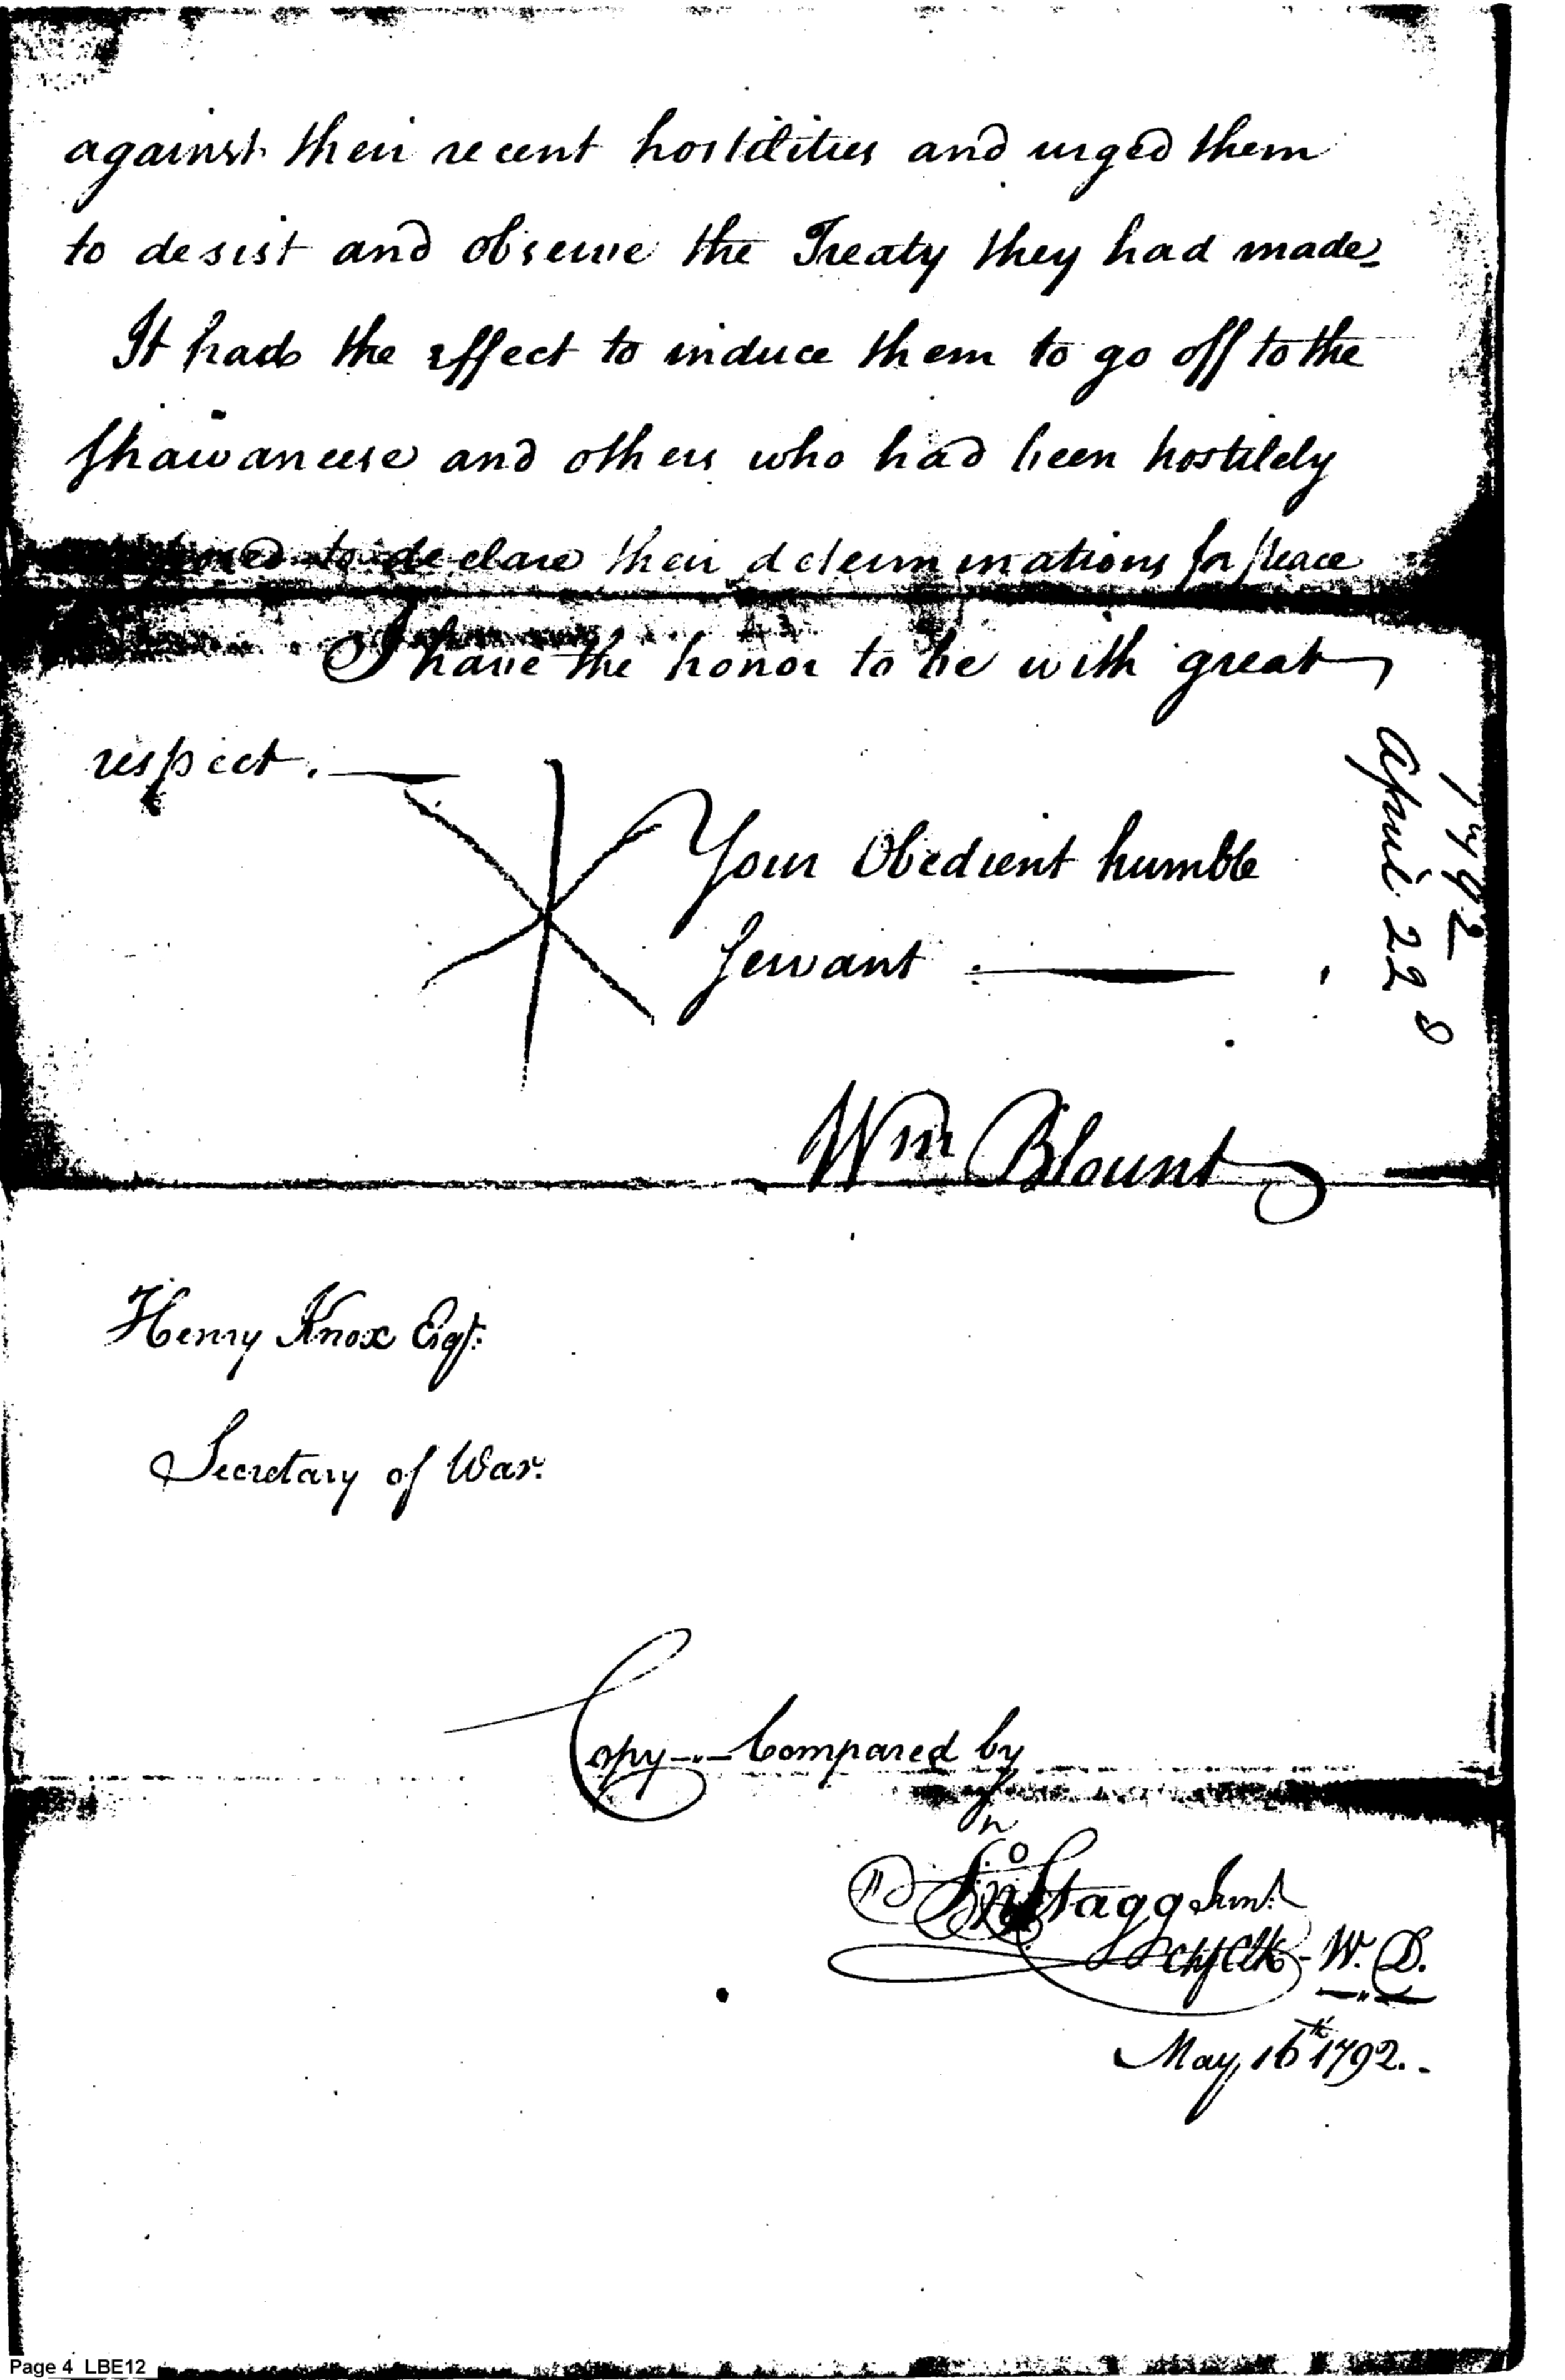 against their recent hostilities and urged them
to desist and observe the Treaty they had made
It had the effect to induce them to go off to the
Shawaneese and others who had been hostilely
to declare their determinations for peace
I have the honor to be with great
respect.
Your Obedient humble
Servant
Wm Blount
1792
April 22d
Henry Knox Esqr.
Secretary of War.
Copy Compared by
Jno Stagg Junr.
Chf Clk - W. D.
May 16th 1792.
Page 4 LBE12